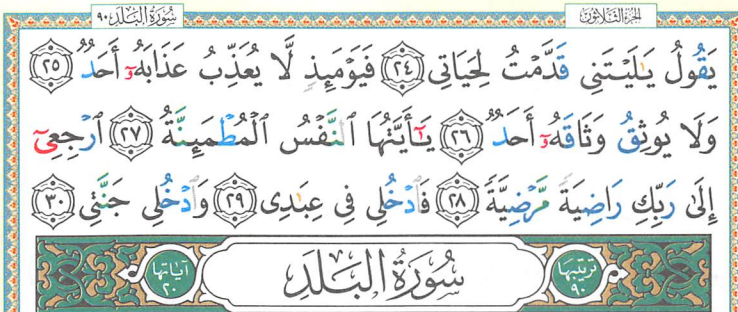 الجزء الثلاثون سُورَةُ البَلَد ٩٠
يَقُولُ يَٰلَيْتَنِى قَدَّمْتُ لِحَيَاتِى ٢٤ فَيَوْمَئِذٍ لَّا يُعَذِّبُ عَذَابَهُۥٓ أَحَدٌ ٢٥
وَلَا يُوثِقُ وَثَاقَهُۥٓ أَحَدٌ ٢٦ يَٰٓأَيَّتُهَا ٱلنَّفْسُ ٱلْمُطْمَئِنَّةُ ٢٧ ٱرْجِعِىٓ
إِلَىٰ رَبِّكِ رَاضِيَةً مَّرْضِيَّةً ٢٨ فَٱدْخُلِى فِى عِبَٰدِى ٢٩ وَٱدْخُلِى جَنَّتِى ٣٠
ترتيبها ٩٠ سُورَةُ البَلَدِ آياتها ٢٠